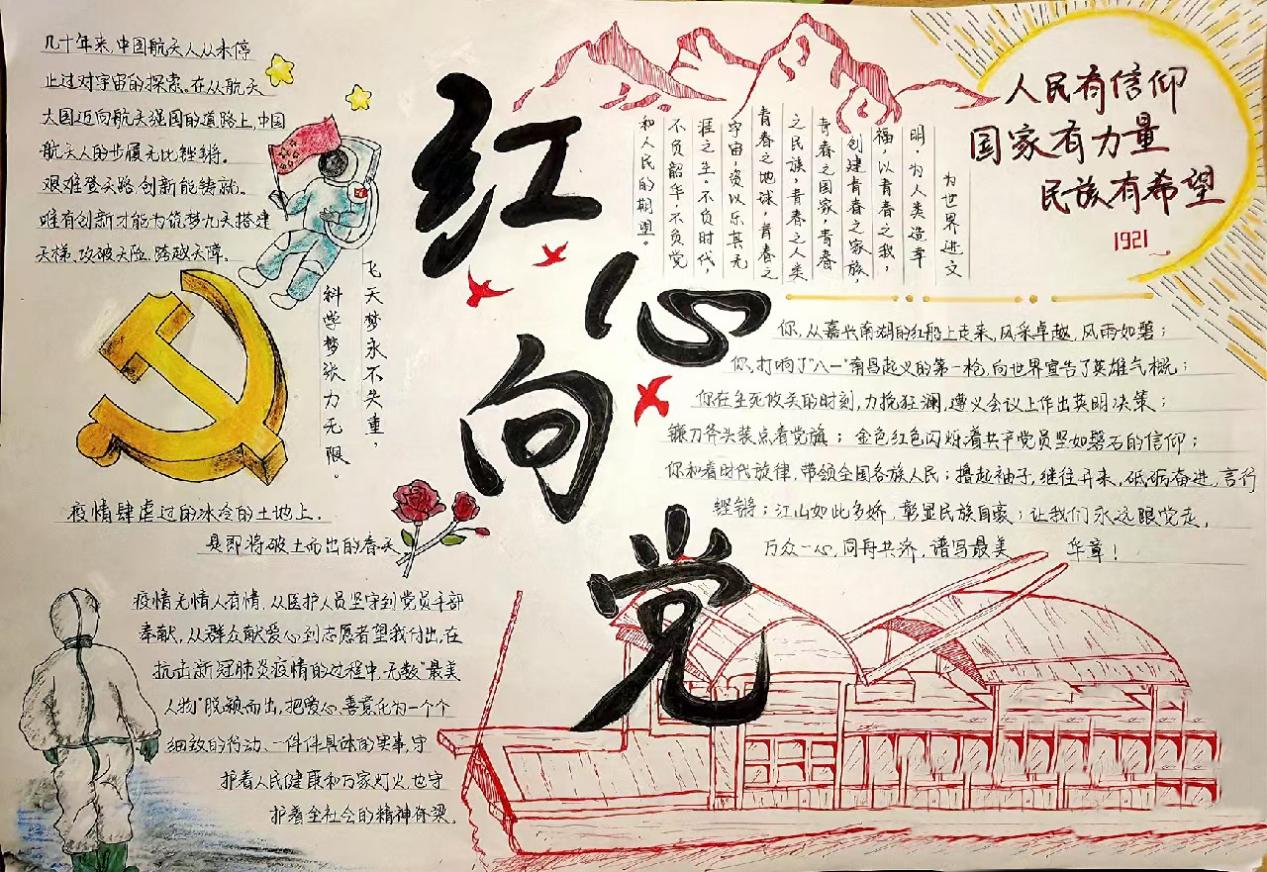 几十年来,中国航天人从未停
止过对宇宙的探索。在从航天
大国迈向航天强国的道路上,中国
航天人的步履无比铿锵。
艰难登天路,创新能铸就。
唯有创新才能为筑梦九天搭建
天梯、攻破天险、跨越天障。
飞天梦永不失重,
科学梦张力无限。
红心向党
人民有信仰
国家有力量
民族有希望
1921
为世界进文
明,为人类造幸
福,以青春之我,
创建青春之家族,
青春之国家,青春
之民族,青春之人类
青春之地球,青春之
宇宙,资以乐其无
涯之生。不负时代,
不负韶华,不负党
和人民的期望。
你,从嘉兴南湖的红船上走来,风采卓越,风雨如磐;
你,打响了"八一"南昌起义的第一枪,向世界宣告了英雄气概;
你在生死攸关的时刻,力挽狂澜,遵义会议上作出英明决策;
镰刀斧头装点着党旗;金色红色闪烁着共产党员坚如磐石的信仰;
你和着时代旋律,带领全国各族人民;撸起袖子,继往开来,砥砺奋进,言行
铿锵;江山如此多娇,彰显民族自豪;让我们永远跟党走,
万众一心,同舟共济,谱写最美 华章!
疫情肆虐过的冰冷的土地上,
是即将破土而出的春天
疫情无情人有情,从医护人员坚守到党员干部
奉献,从群众献爱心到志愿者望我付出,在
抗击新冠肺炎疫情的过程中,无数"最美
人物"脱颖而出,把爱心、善意化为一个个
细致的行动、一件件具体的实事,守
护着人民健康和万家灯火,也守
护着全社会的精神脊梁。